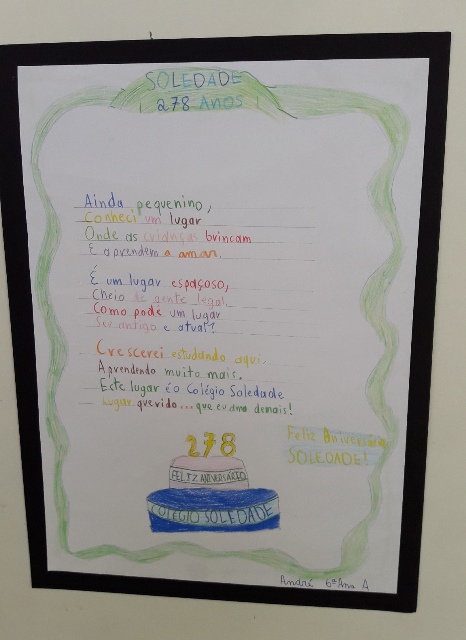 SOLEDADE
278 ANOS
Ainda pequenino,
Conheci um lugar
Onde as crianças brincam
E aprendem a amar.
É um lugar espaçoso,
Cheio de gente legal.
Como pode um lugar
Ser antigo e atual?
Crescerei estudando aqui,
Aprendendo muito mais.
Este lugar é o Colégio Soledade
Lugar querido... que eu amo demais!
Feliz Aniversário
SOLEDADE!
278
FELIZ ANIVERSÁRIO
COLÉGIO SOLEDADE
André 6º Ano A